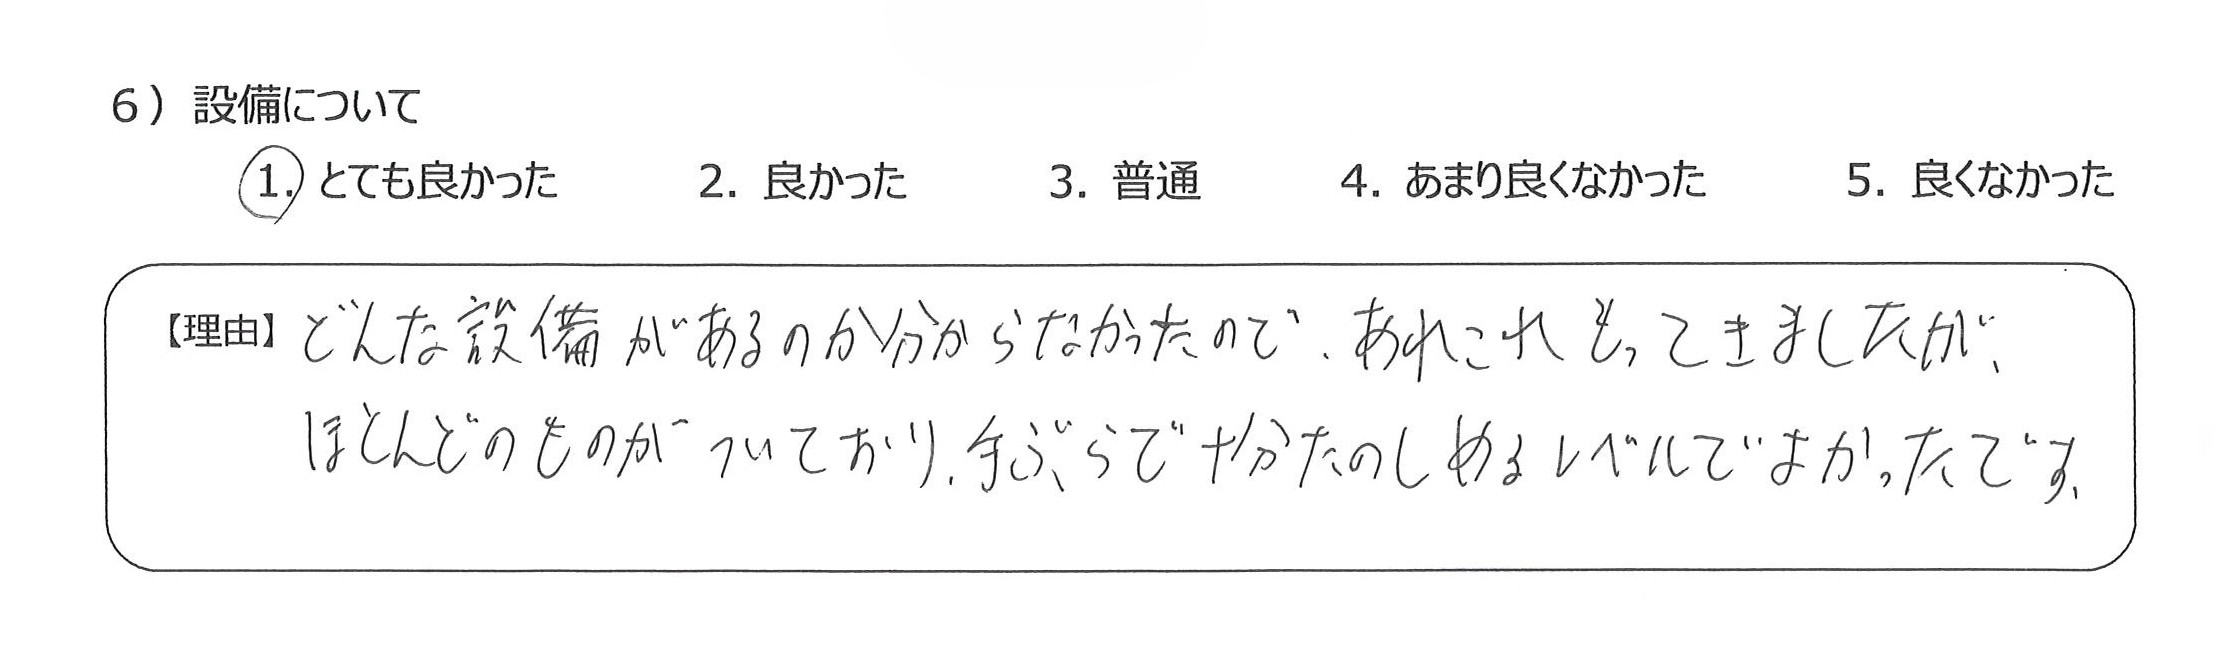 6）設備について
1. とても良かった 2. 良かった 3. 普通 4. あまり良くなかった 5. 良くなかった
【理由】どんな設備があるのか分からなかったので、あれこれもってきましたが、
ほとんどのものがついており、手ぶらで十分たのしめるレベルでよかったです。